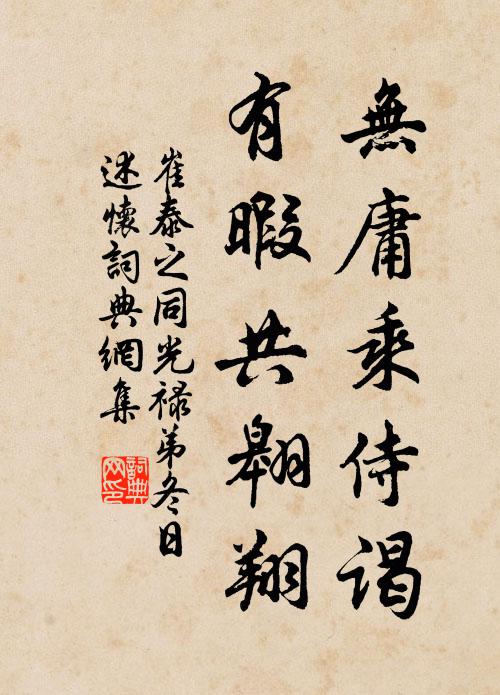 無庸乘侍謁
有暇共翱翔
崔泰之同光禄弟冬日
述懷詞典網集
詞典网印